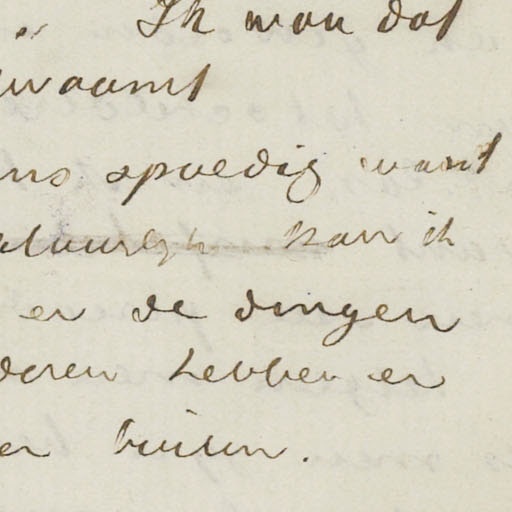 Ik wou dat
kwaamt
ens spoedig want
natuurlijk kan ik
er de dingen
deren hebben er
er buiten.